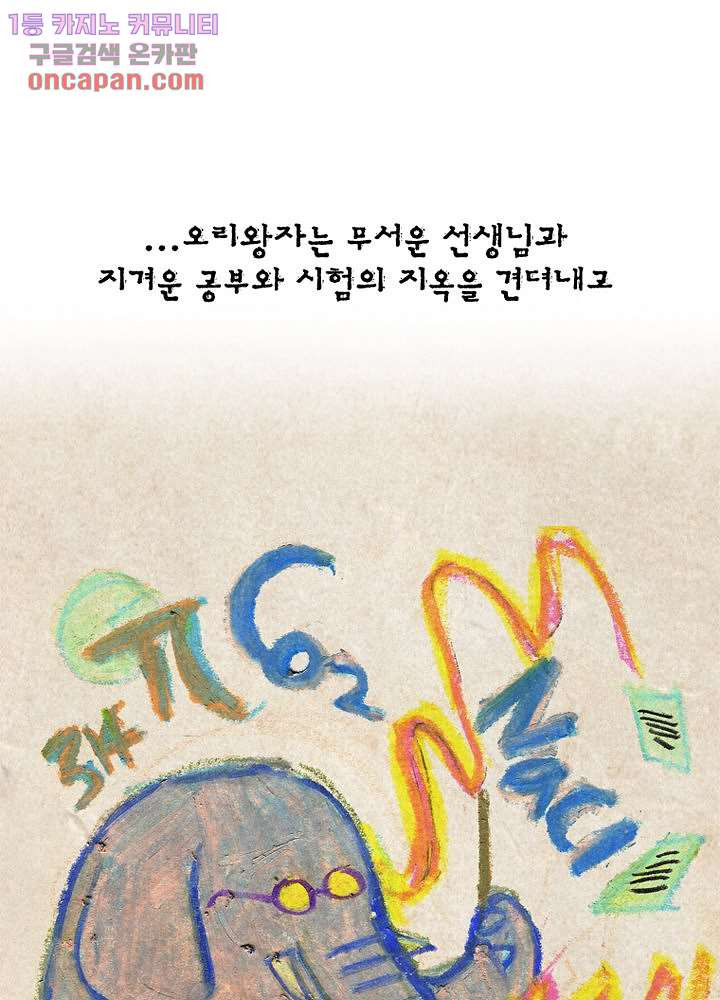 1등 카지노 커뮤니티
구글검색 온카판
oncapan.com
...오리왕자는 무서운 선생님과
지겨운 공부와 시험의 지옥을 견뎌내고
π
CO₂
NaCl